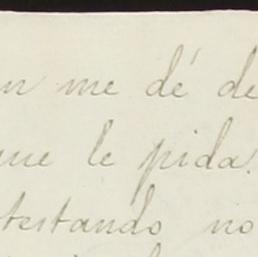 n me dé de
ue le pida.
testando no